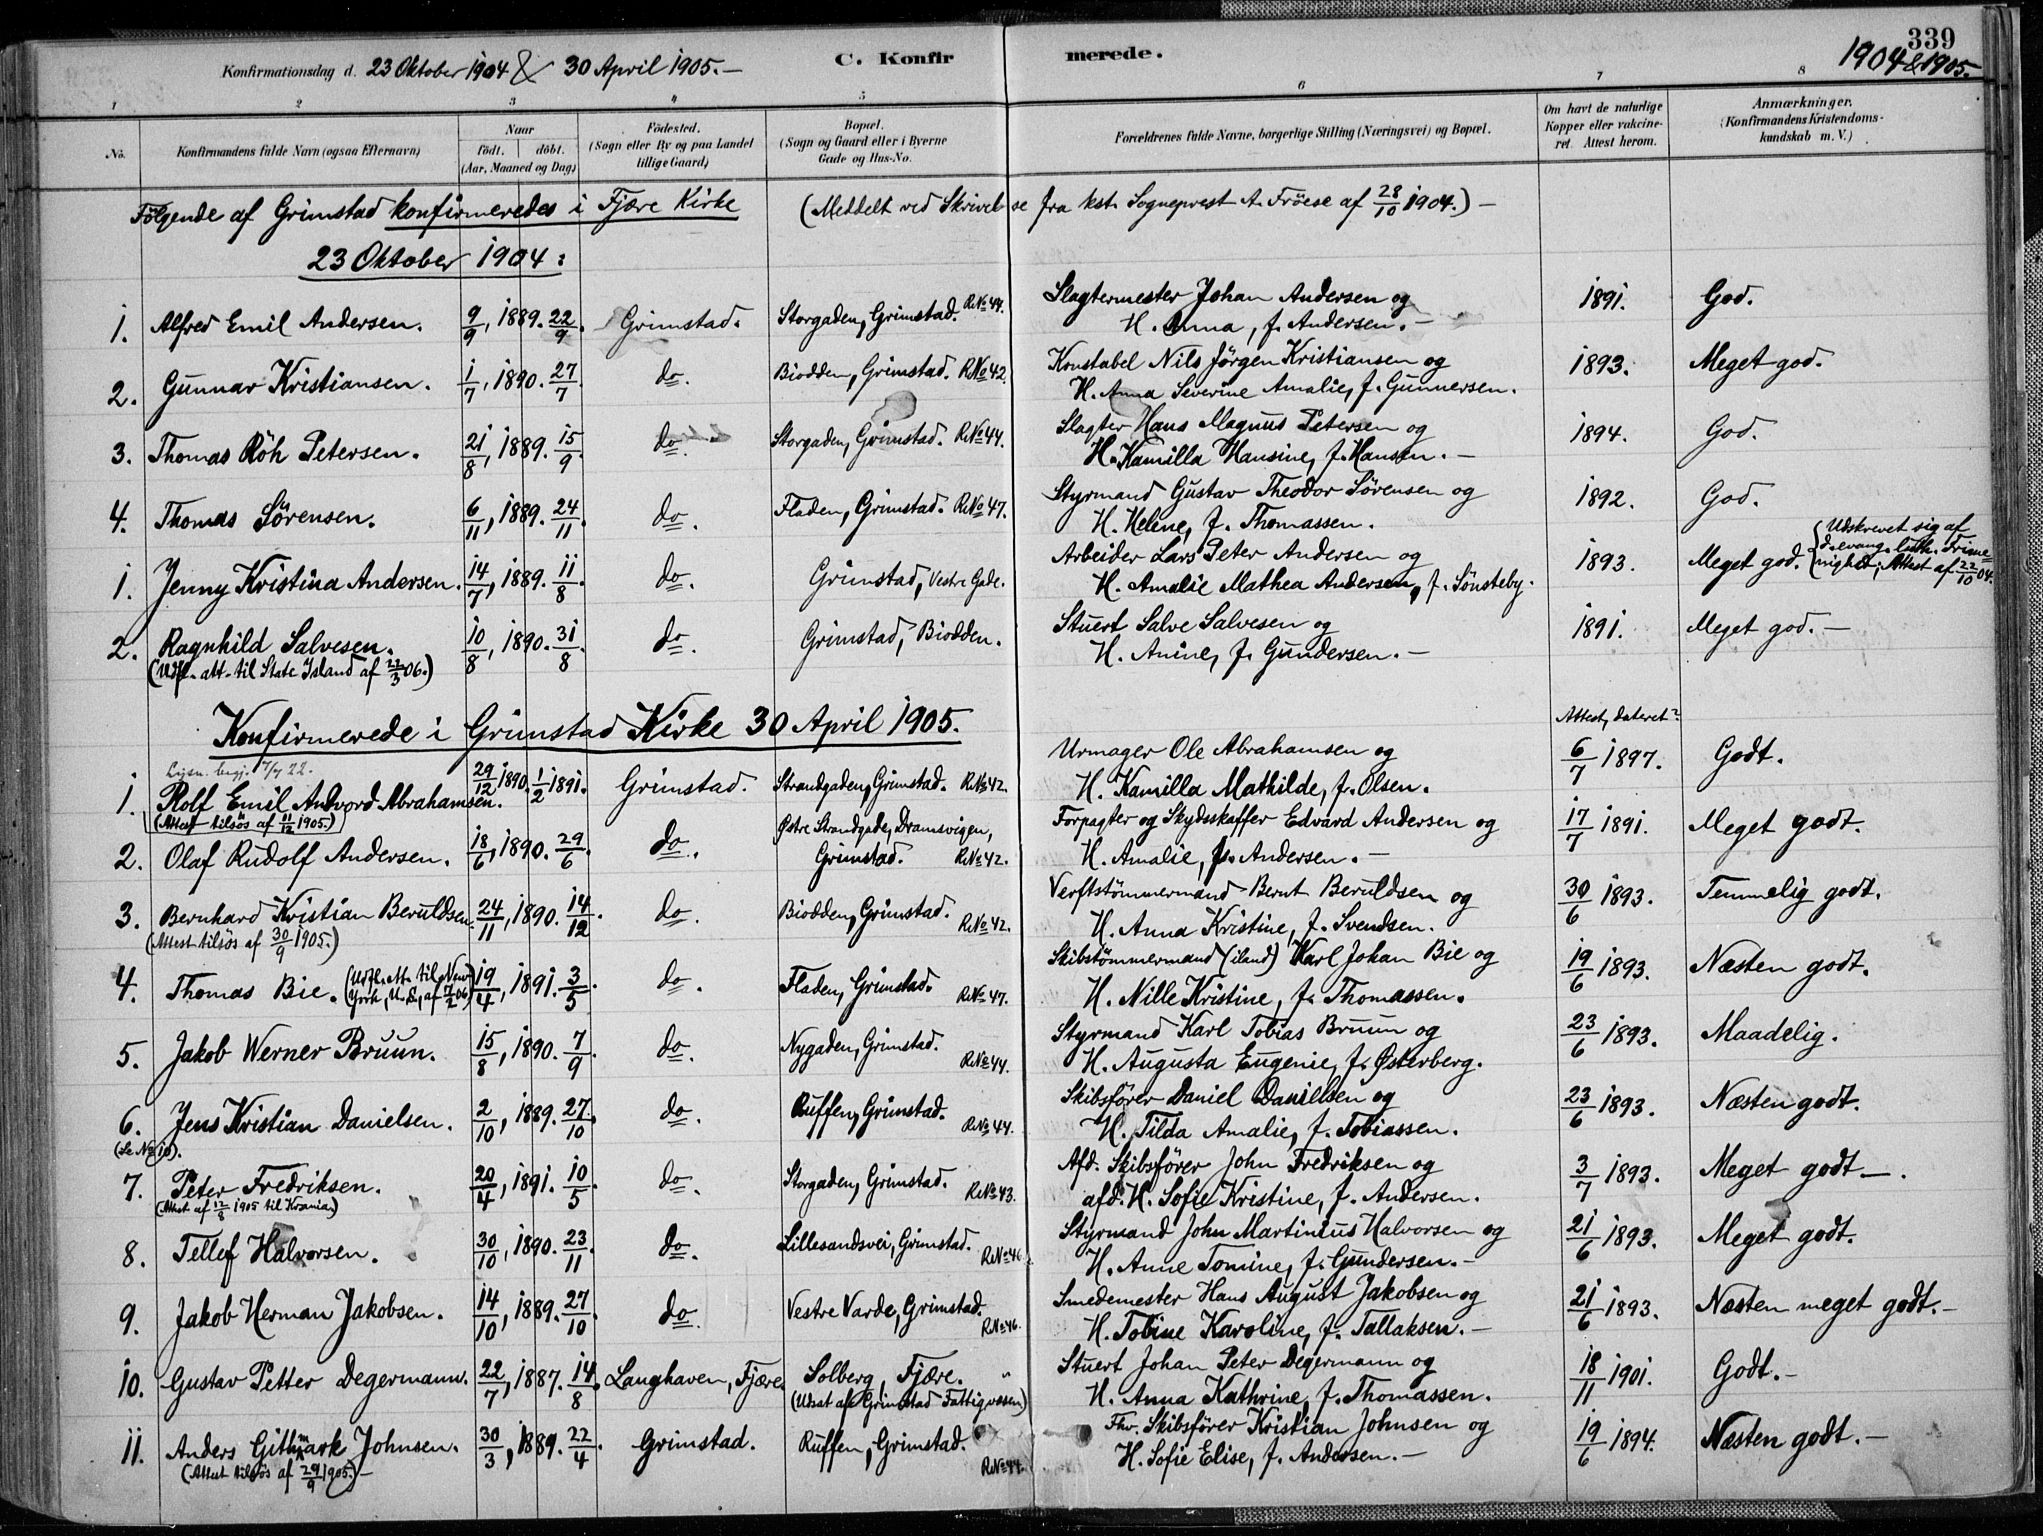 339
Konfirmationsdag d. 23 Oktober 1904 & 30 April 1905.—
C. Konfirmerede.
1904 & 1905.
1 2 3 4 5 6 7 8
No.
Konfirmandens fulde Navn (ogsaa Efternavn)
Naar
födt. döbt.
(Aar, Maaned og Dag)
Födested.
(Sogn eller By og paa Landet
tillige Gaard)
Bopæl.
(Sogn og Gaard eller i Byerne
Gade og Hus-No.
Forældrenes fulde Navne, borgerlige Stilling (Næringsvei) og Bopæl.
Om havt de naturlige
Kopper eller vakcine-
ret. Attest herom.
Anmærkninger.
(Konfirmandens Kristendoms-
kundskab m. V.)
Følgende af Grimstad konfirmeredes i Fjære Kirke (Meddelt ved Skrivelse fra kst. Sogneprest A. Fröese af 28/10 1904.) —
23 Oktober 1904:
1. Alfred Emil Andersen. 9/9, 1889. 22/9. Grimstad. Storgaden, Grimstad. R.No 44. Slagtermester Johan Andersen og 1891. God.
H. Anna, f. Andersen. —
2. Gunnar Kristiansen. 1/7, 1890. 27/7 do. Biodden, Grimstad. R.No 42. Konstabel Nils Jörgen Kristiansen og 1893. Meget god.
H. Anna Severine Amalie, f. Gunnersen.
3. Thomas Röh Petersen. 21/8, 1889. 15/9. do. Storgaden, Grimstad. R.No 44. Slagter Hans Magnus Petersen og 1894. God.
H. Kamilla Hansine, f. Hansen. —
4. Thomas Sörensen. 6/11, 1889. 24/11. do. Fladen, Grimstad. R.No 47. Styrmand Gustav Theodor Sörensen og 1892. God.
H. Helene, f. Thomassen.
1. Jenny Kristina Andersen. 14/7, 1889. 11/8 do. Grimstad, Vestre Gade. Arbeider Lars Peter Andersen og 1893. Meget god. (Udskrevet sig af
d. evang. luth. Frime-
nighed; Attest af 22/10 04.
H. Amalie Mathea Andersen, f. Sönsteby.
2. Ragnhild Salvesen. 10/8, 1890. 31/8 do. Grimstad, Biodden. Stuert Salve Salvesen og 1891. Meget god. —
(Udf. att. til State Island af 22/3 06.) H. Anine, f. Gundersen. —
Konfirmerede i Grimstad Kirke 30 April 1905.
Attest, dateret:
Lysn. begj. 7/7 22.
1. Rolf Emil Andvord Abrahamsen. 29/12 1890. 1/2 1891. Grimstad. Strandgaden, Grimstad. R.No 42. Urmager Ole Abrahamsen og 6/7 1897. Godt.
(Attest tilsös af 11/12 1905.) H. Kamilla Mathilde, f. Olsen.
2. Olaf Rudolf Andersen. 18/6, 1890. 29/6. do. Østre Strandgade, Dramsvigen, Forpagter og Skydsskaffer Edvard Andersen og 17/7 1891. Meget godt.
Grimstad. R.No 42. H. Amalie, f. Andersen. —
3. Bernhard Kristian Beruldsen. 24/11, 1890. 14/12. do. Biodden, Grimstad. R.No 42. Verftstömmermand Bernt Beruldsen og 30/6 1893. Temmelig godt.
(Attest tilsös af 30/9 1905.) H. Anna Kristine, f. Svendsen.
4. Thomas Bie. (Udf. Att. til New York, U.S., af 7/2 06) 19/4, 1891. 3/5. do. Fladen, Grimstad. R.No 47. Skibstömmermand (iland) Karl Johan Bie og 19/6 1893. Næsten godt.
H. Nille Kristine, f. Thomassen.
5. Jakob Werner Bruun. 15/8, 1890. 7/9. do. Nygaden, Grimstad. R.No 44. Styrmand Karl Tobias Bruun og 23/6 1893. Maadelig.
H. Augusta Eugenie, f. Østerberg.
6. Jens Kristian Danielsen. 2/10, 1889. 27/10. do. Ruffen, Grimstad. R.No 44. Skibsförer Daniel Danielsen og 23/6 1893. Næsten godt.
(Se No 10). H. Tilda Amalie, f. Tobiassen.
7. Peter Fredriksen. 20/4, 1891. 10/5 do. Storgaden, Grimstad. R.No 43. Afd. Skibsförer John Fredriksen og 3/7 1893. Meget godt —.
(Attest af 12/8 1905 til Krania.) afd. H. Sofie Kristine, f. Andersen.
8. Tellef Halvorsen. 30/10, 1890. 23/11. do. Lillesandsvei, Grimstad. R.No 46. Styrmand John Martinius Halvorsen og 21/6 1893. Meget godt.
H. Anne Tomine, f. Gundersen. —
9. Jakob Herman Jakobsen. 14/10, 1889. 27/10. do. Vestre Varde, Grimstad. R.No 46. Smedemester Hans August Jakobsen og 21/6 1893. Næsten meget godt. —
H. Tobine Karoline, f. Tallaksen. —
10. Gustav Petter Degermann. 22/7, 1887. 14/8. Langhaven, Fjære. Solberg, Fjære. Stuert Johan Peter Degermann og 18/11 1901. Godt. —
(Udsat af Grimstad Fattigvæsen) H. Anna Kathrine, f. Thomassen.
11. Anders Githmark Johnsen. 30/3, 1889. 22/4. Grimstad. Ruffen, Grimstad. R.No 44. Fhv. Skibsförer Kristian Johnsen og 19/6 1894. Næsten godt. —
(Attest tilsös af 29/9 1905.) — H. Sofie Elise, f. Andersen. —